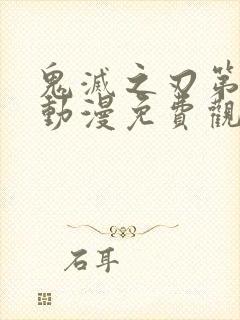 鬼滅之刃第
動漫免費觀
石耳